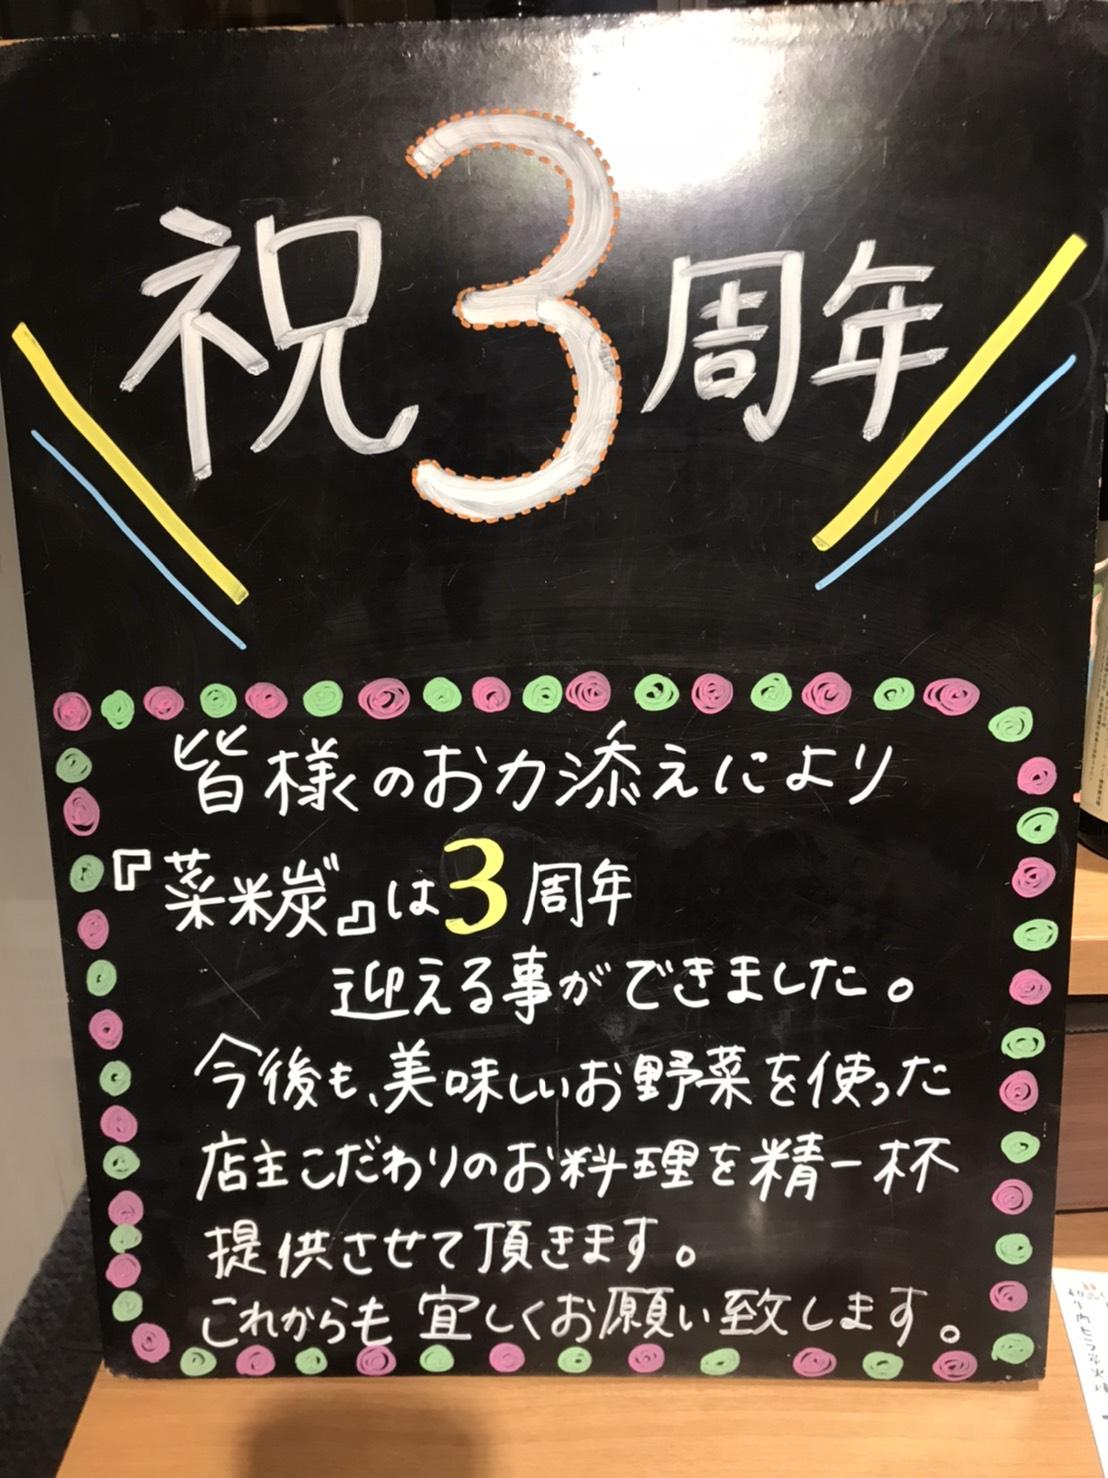 祝3周年
皆様のお力添えにより
『菜米炭゛』は3周年
迎える事ができました。
今後も、美味しいお野菜を使った
店主こだわりのお料理を精一杯
提供させて頂きます。
これからも宜しくお願い致します。